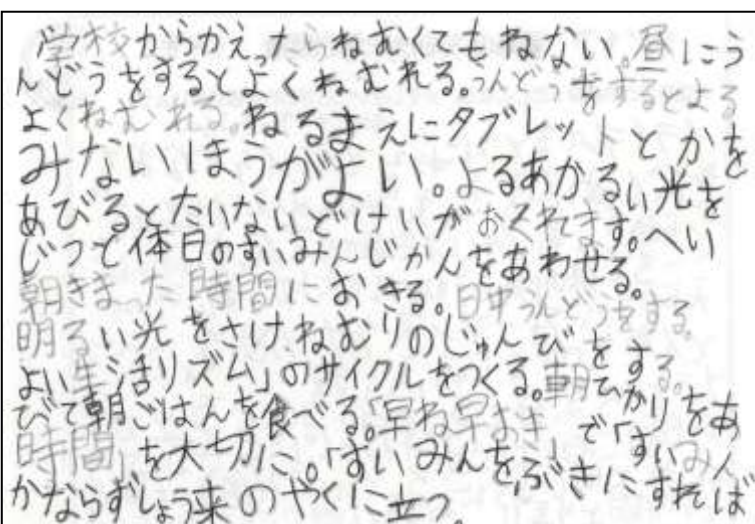 学校からかえったらねむくてもねない。昼にう
んどうをするとよくねむれる。うんどうをするとよる
よくねむれる。ねるまえにタブレットとかを
みないほうがよい。よるあかるい光を
あびるとたいないどけいがおくれます。へい
じつと休日のすいみんじかんをあわせる。
朝きまった時間におきる。日中うんどうをする。
明るい光をさけ、ねむりのじゅんびをする。
よい生活リズム」のサイクルをつくる。朝ひかりをあ
びて朝ごはんを食べる。「早ね早おき」で「すいみん
時間」を大切に。「すいみんをぶきにすれば
かならずしょう来のやくに立つ。